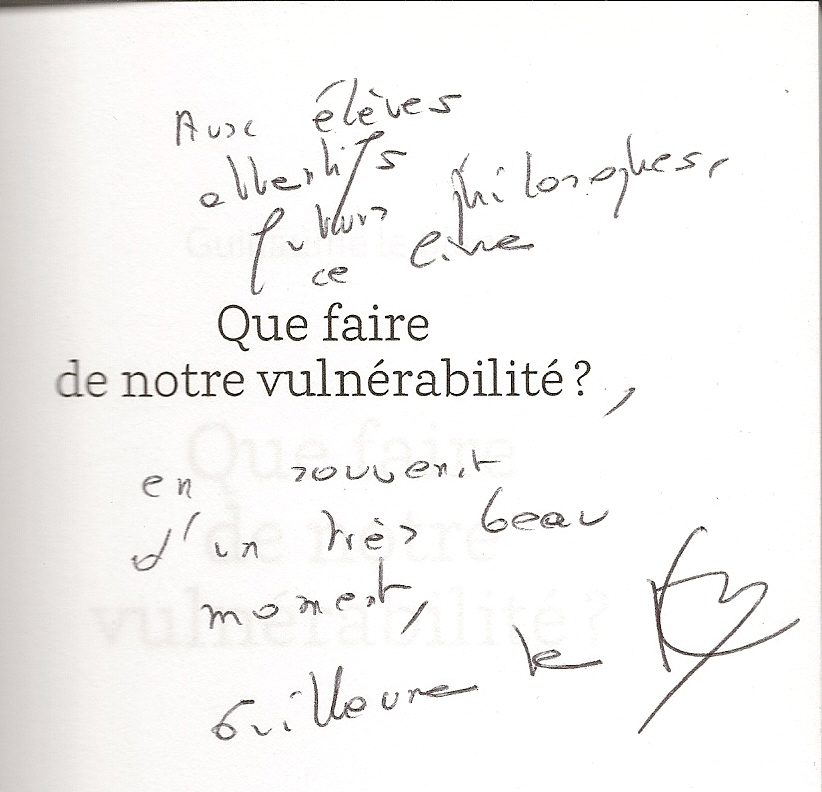 Aux élèves
attentifs
futurs philosophes,
ce livre
Que faire
de notre vulnérabilité ? ,
en souvenir
d'un très beau
moment,
Guillaume le